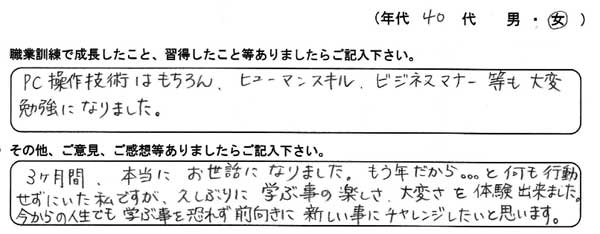 （年代 40 代 男・女）
職業訓練で成長したこと、習得したこと等ありましたらご記入下さい。
PC操作技術はもちろん、ヒューマンスキル、ビジネスマナー等も大変
勉強になりました。
その他、ご意見、ご感想等ありましたらご記入下さい。
3ヶ月間、本当にお世話になりました。もう年だから。。。と何も行動
せずにいた私ですが、久しぶりに学ぶ事の楽しさ、大変さを体験出来ました。
今からの人生でも学ぶ事を恐れず前向きに新しい事にチャレンジしたいと思います。